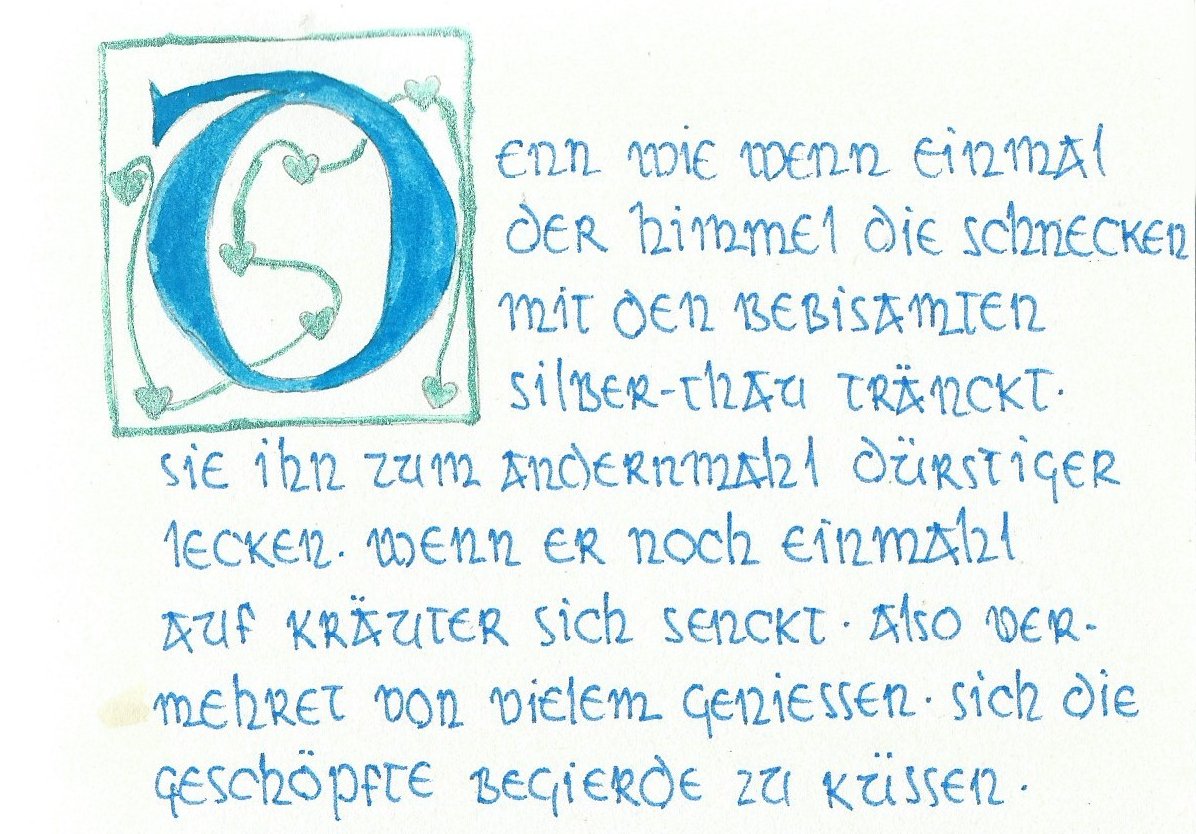 Denn wie wenn einmal
der himmel die schnecken
mit den bebisamten
silber-thau tränckt.
sie ihn zum andernmahl dürstiger
lecken. wenn er noch einmahl
auf kräuter sich senckt. also ver-
mehret von vielem geniessen. sich die
geschöpfte begierde zu küssen.